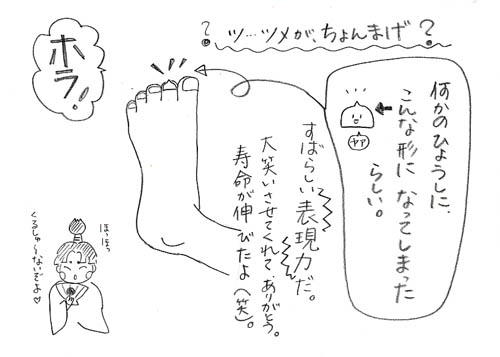 ?ツ…ツメが、ちょんまげ?
ホラ!
何かのひょうしに、
こんな形になってしまった
らしい。
ヤア
すばらしい表現力だ。
大笑いさせてくれて、ありがとう。
寿命が伸びたよ(笑)。
ほっほっ
くるしゅ〜ないぞよ♡